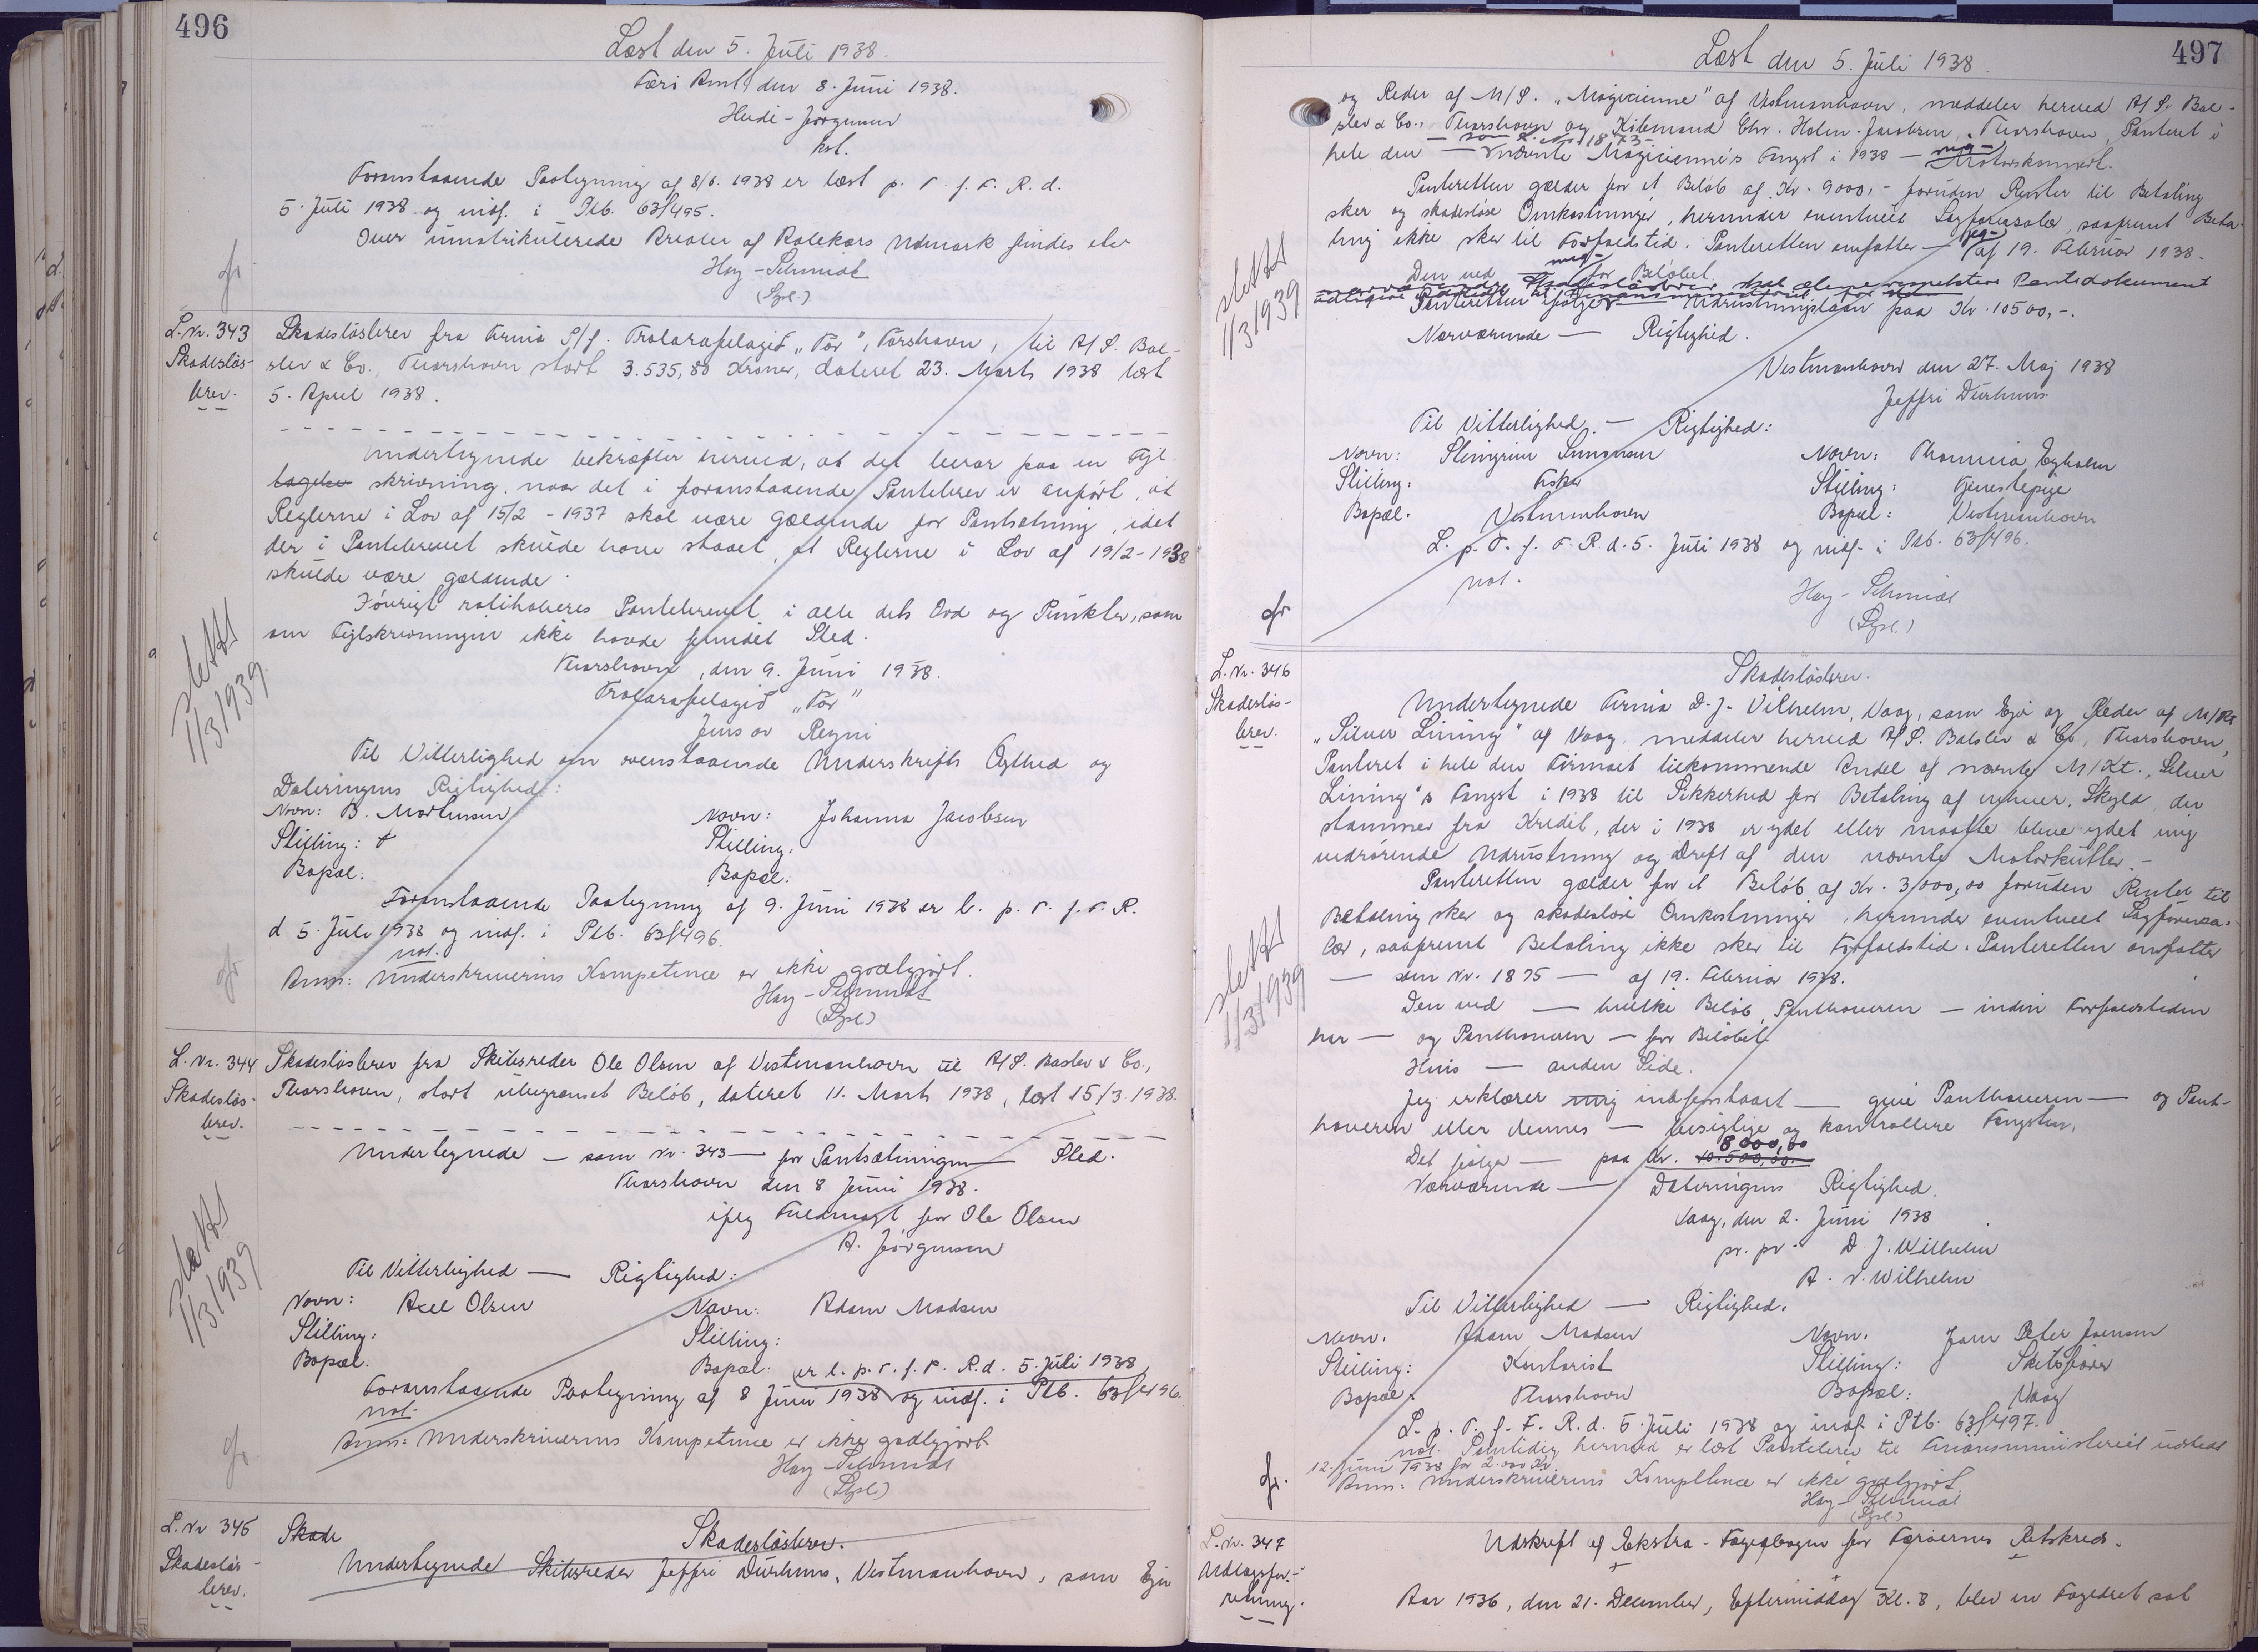 496
Læst den 5. Juli 1938.
Færø Amt, den 8. Juni 1938.
Heide-Jørgensen
kst.
Foranstaaende Paategning af 8/6. 1938 er læst p. T. f. F. R. d.
5. Juli 1938 og indf. i Ptb. 63/495.
Over umatrikulerede Arealer af Udmark findes
Hoy-Schmidt
(Sgsl.)
L. Nr. 343
Skadesløs-
brev.
Skadesløsbrev fra Firma S/f. Trolarafelagið „Tor", Torshavn, til A/S. Bal-
slev & Co., Thorshavn stort 3.535,80 Kroner, dateret 23. Marts 1938 læst
5. April 1938.
Undertegnede bekræfter herved, at det beror paa en Fejl-
tagelse skrivning, naar det i foranstaaende Pantebrev er anført, at
Reglerne i Lov af 15/2 - 1937 skal være gældende for Pantsætning, idet
der i Pantebrevet skulde have staaet, at Reglerne i Lov af 19/2 - 1938
skulde være gældende.
Iøvrigt ratihaberes Pantebrevet i alle dets Ord og Punkter, som
om Fejlskrivningen ikke havde fundet Sted.
Thorshavn, den 9. Juni 1938.
Trolarafelagið „Tor"
Jens av Reyni
Til Vitterlighed om ovenstaaende Underskrifts Ægthed og
Dateringens Rigtighed:
Navn: B. Mortensen Navn: Johanna Jacobsen
Stilling: Stilling.
Bopæl. Bopæl.
Foranstaaende Paategning af 9. Juni 1938 er l. p. T. f. F. R.
d. 5. Juli 1938 og indf. i Ptb. 63/496.
not.
Anm: Underskriverens Kompetence er ikke godtgjort.
Hoy-Schmidt
(Sgsl.)
slettet
1/3 1939
L. Nr. 344
Skadesløs-
brev.
Skadesløsbrev fra Skibsreder Ole Olsen af Vestmanhavn til A/S. Baslev & Co.,
Thorshavn, stort ubegrænset Beløb, dateret 11. Marts 1938, læst 15/3. 1938.
Undertegnede — som Nr. 343 — for Pantsætningen — Sted.
Thorshavn den 8 Juni 1938.
iflg Fuldmagt for Ole Olsen
A. Jørgensen
Til Vitterlighed — Rigtighed:
Navn: Axel Olsen Navn: Adam Madsen
Stilling: Stilling:
Bopæl. Bopæl.
er l. p. T. f. F. R. d. 5. Juli 1938
Foranstaaende Paategning af 8 Juni 1938 og indf. i Ptb. 63/496.
not.
Anm: Underskriverens Kompetence er ikke godtgjort.
Hoy-Schmidt
(Sgsl.)
slettet
1/3 1939
L. Nr 345
Skadesløs-
brev.
Skade Skadesløsbrev.
Undertegnede Skibsreder Jeffri Durhuus, Vestmanhavn, som Ejer
497
Læst den 5. Juli 1938.
og Reder af M/S. „Magicienne" af Vestmanhavn, meddeler herved A/S. Bal-
slev & Co., Thorshavn og Købmand Chr. Holm-Jacobsen, Thorshavn, Panteret i
hele den — nævnte Magicienne's Fangst i 1938 — mig — Motorskonnert.
Panteretten gælder for et Beløb af Kr. 9000,- foruden Renter til Betaling
sker og skadesløse Omkostninger, herunder eventuelt Sagførersalær, saafremt Beta-
ling ikke sker til Forfaldstid. Panteretten omfatter — jeg — af 19. Februar 1938.
Den ved — mig — for Beløbet.
Panteretten følger Udrustningslaan paa Kr. 10500,-.
Nærværende — Rigtighed.
Vestmanhavn den 27. Maj 1938
Jeffri Durhuus
Til Vitterlighed. — Rigtighed:
Navn: Steingrim Simonsen Navn: Thomina Egholm
Stilling: Fisker Stilling: Tjenestepige
Bopæl. Vestmanhavn Bopæl: Vestmanhavn
L. p. T. f. F. R. d. 5. Juli 1938 og indf. i Ptb. 63/496.
not.
Hoy-Schmidt
(Sgsl.)
slettet
1/3 1939
L. Nr. 346
Skadesløs-
brev.
Skadesløsbrev.
Undertegnede Firma D. J. Vilhelm, Vaag, som Ejer og Reder af M/Kt
„Silver Lining" af Vaag, meddeler herved A/S. Balslev & Co, Thorshavn,
Panteret i hele den Firmaet tilkommende Andel af nævnte M/Kt. „Silver
Lining"s Fangst i 1938 til Sikkerhed for Betaling af enhver Skyld, der
stammer fra Kredit, der i 1938 er ydet eller maatte blive ydet mig
vedrørende Udrustning og Drift af den nævnte Motorkutter. -
Panteretten gælder for et Beløb af Kr. 3000,00 foruden Renter til
Betaling sker og skadesløse Omkostninger, herunder eventuelt Sagførersa-
lær, saafremt Betaling ikke sker til Forfaldstid. Panteretten omfatter
— som Nr. 1875 — af 19. Februar 1938.
Den ved — hvilke Beløb, Panthaveren — inden Forfaldstiden
har — og Panthaveren — for Beløbet.
Hvis — anden Side.
Jeg erklærer mig indforstaaet — give Panthaveren — og Pant-
haveren eller dennes — besigtige og kontrollere Fangsten.
8000,00
Det følger — paa Kr. 10.500,00.
Nærværende — Dateringens Rigtighed.
Vaag, den 2. Juni 1938.
pr. pr. D. J. Wilhelm
A. V. Wilhelm
Til Vitterlighed — Rigtighed.
Navn. Adam Madsen Navn. Joen Peter Joensen
Stilling: Kontorist Stilling: Skibsfører
Bopæl: Thorshavn Bopæl: Vaag
L. p. T. f. F. R. d. 5. Juli 1938 og indf. i Ptb. 63/497.
not. Samtidig hermed er læst Pantebrev til Finansministeriet udstedt
12. Juni 1938 for 2.000 Kr
Anm: Underskriverens Kompetence er ikke godtgjort.
Hoy-Schmidt
(Sgsl.)
slettet
1/3 1939
L. Nr. 347
Udlægsfor-
retning.
Udskrift af Ekstra-Fogedbogen for Færøernes Retskreds.
Aar 1936, den 21. December, Eftermiddag Kl. 8, blev en Fogedret sat